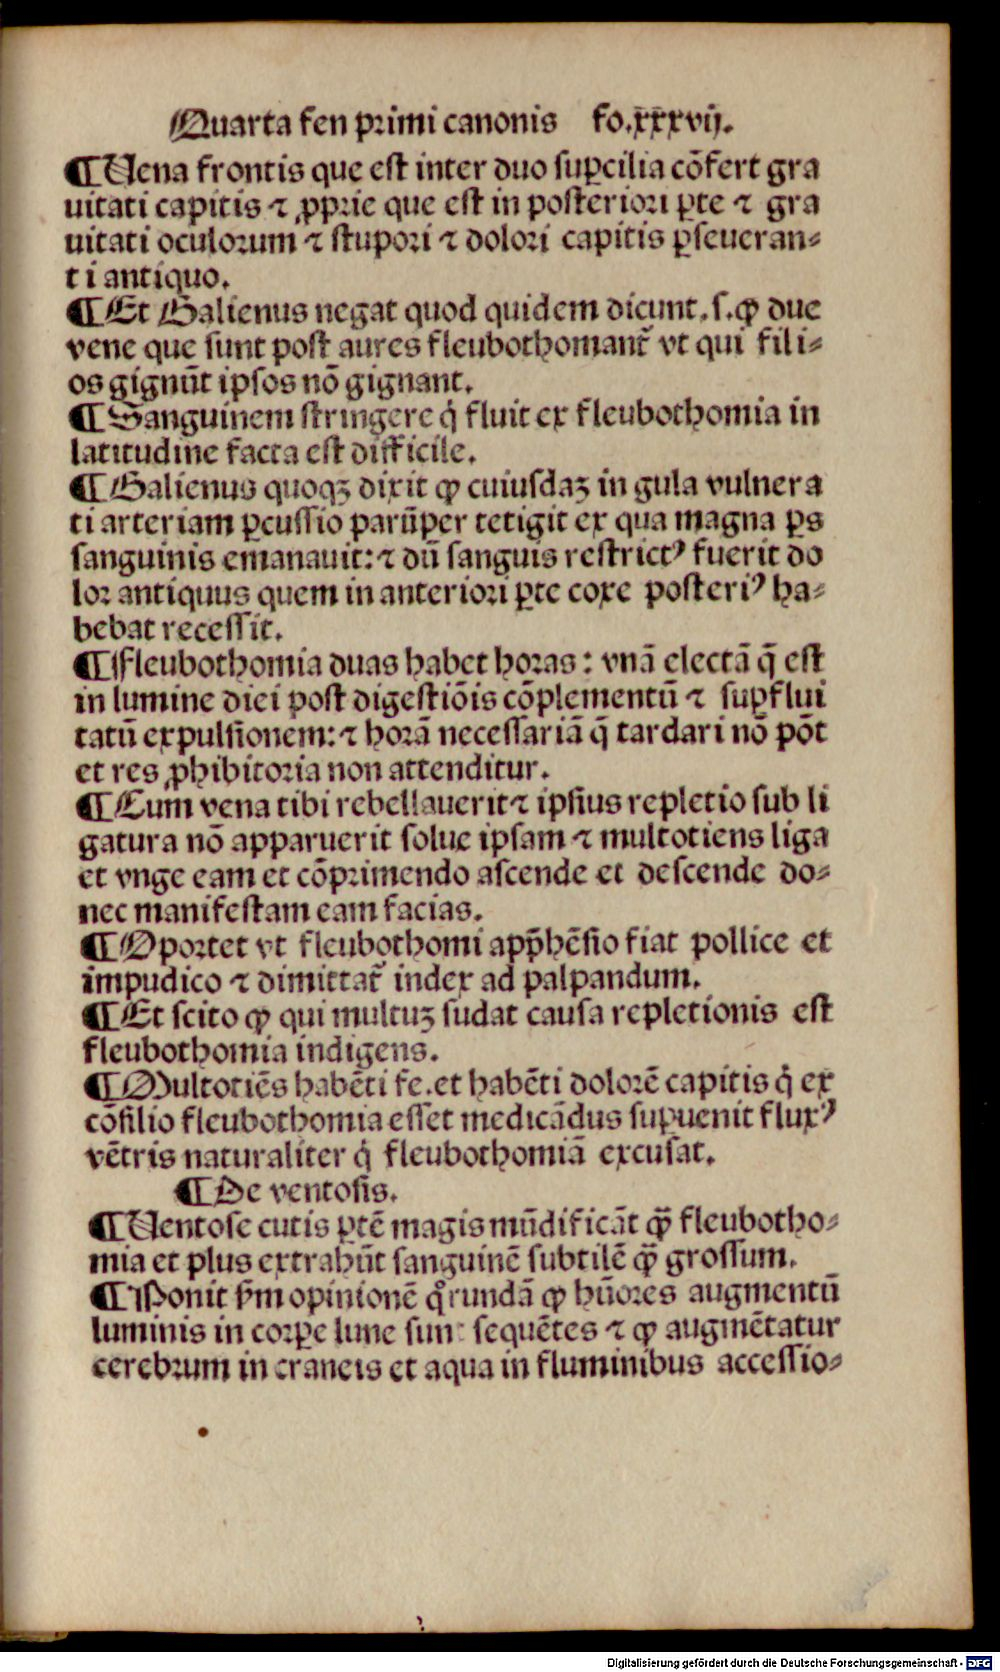 Quarta fen primi canonis fo.xxxvij.
¶Uena frontis que est inter duo suꝑcilia cõfert gra
uitati capitis ⁊ ꝓprie que est in posteriori ꝑte ⁊ gra
uitati oculorum ⁊ stupori ⁊ dolori capitis ꝑseueran⸗
ti antiquo.
¶Et Galienus negat quod quidem dicunt.s.ꝙ due
vene que sunt post aures fleubothomant᷑ vt qui fili⸗
os gignũt ipsos nõ gignant.
¶Sanguinem stringere q̇ fluit ex fleubothomia in
latitudine facta est difficile.
¶Galienus quoqꝫ dixit ꝙ cuiusdaꝫ in gula vulnera
ti arteriam ꝑcussio parũper tetigit ex qua magna ꝑs
sanguinis emanauit:⁊ dũ sanguis restrictꝰ fuerit do
lor antiquus quem in anteriori ꝑte coxe posteriꝰ ha⸗
bebat recessit.
¶Fleubothomia duas habet horas: vnã electã q̃ est
in lumine diei post digestiõis cõplementũ ⁊ suꝑflui
tatũ expulsionem:⁊ horã necessariã q̃ tardari nõ põt
et res ꝓhibitoria non attenditur.
¶Cum vena tibi rebellauerit⁊ ipsius repletio sub li
gatura nõ apparuerit solue ipsam ⁊ multotiens liga
et vnge eam et cõprimendo ascende et descende do⸗
nec manifestam eam facias.
¶Oportet vt fleubothomi app̃hẽsio fiat pollice et
impudico ⁊ dimittat᷑ index ad palpandum.
¶Et scito ꝙ qui multuꝫ sudat causa repletionis est
fleubothomia indigens.
¶Multotiẽs habẽti fe.et habẽti dolorẽ capitis q̇ ex
cõsilio fleubothomia esset medicãdus suꝑuenit fluxꝰ
vẽtris naturaliter q̇ fleubothomiã excusat.
¶De ventosis.
¶Uentose cutis ꝑtẽ magis mũdificãt ꝙ̃ fleubotho⸗
mia et plus extrahũt sanguinẽ subtilẽ ꝙ̃ grossum.
¶Ponit s̃m opinionẽ qͦrundã ꝙ hũores augmentũ
luminis in corꝑe lune sunt sequẽtes ⁊ ꝙ augmẽtatur
cerebrum in craneis et aqua in fluminibus accessio⸗
Digitalisierung gefördert durch die Deutsche Forschungsgemeinschaft - DFG